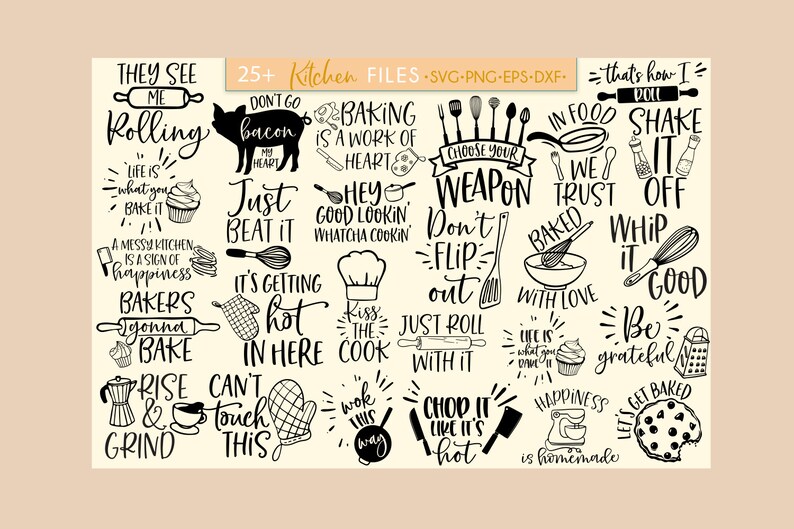 25+ Kitchen FILES • SVG • PNG • EPS • DXF •
THEY SEE
ME
Rolling
DON'T GO
bacon
MY
HEART
BAKING
IS A WORK OF
HEART
CHOOSE YOUR
WEAPON
IN FOOD
WE
TRUST
that's how I
ROLL
SHAKE
IT
OFF
LIFE IS
what you
BAKE IT
Just
BEAT IT
HEY
GOOD LOOKIN'
WHATCHA COOKIN'
Don't
FLIP
out
BAKED
WITH LOVE
WHIP
IT
GOOD
A MESSY KITCHEN
IS A SIGN OF
happiness
IT'S GETTING
hot
IN HERE
Kiss
THE
COOK
BAKERS
gonna
BAKE
JUST ROLL
WITH IT
LIFE IS
what you
BAKE IT
Be
grateful
RISE
&
GRIND
CAN'T
touch
THIS
wok
THIS
way
CHOP IT
LIKE IT'S
hot
HAPPINESS
is homemade
LET'S GET BAKED